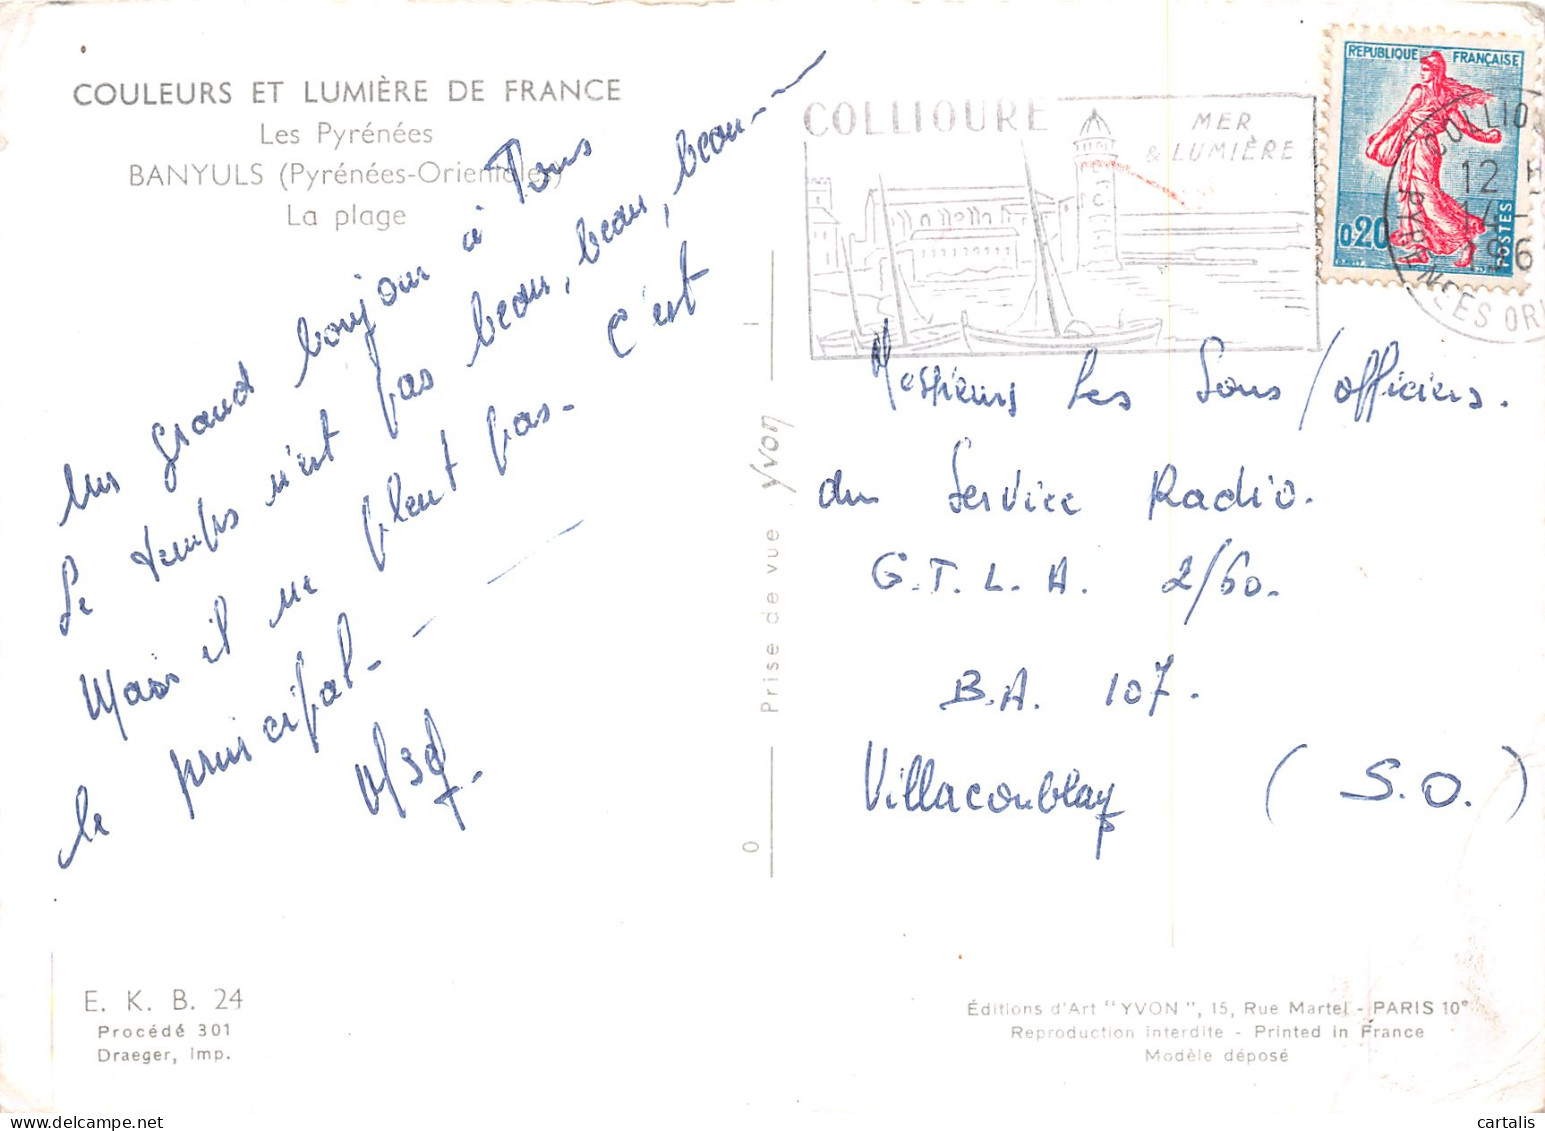 COULEURS ET LUMIÈRE DE FRANCE
Les Pyrénées
BANYULS (Pyrénées-Orientales)
La plage
Un grand bonjour à Tous
Le temps n'est pas beau, beau, beau--
Mais il ne pleut pas. C'est
le principal.
E. K. B. 24
Procédé 301
Draeger, imp.
Prise de vue Yvon
COLLIOURE
MER
& LUMIÈRE
REPUBLIQUE FRANÇAISE
0,20
POSTES
COLLIO
12 H
14 -
196
PYRENEES ORI
Messieurs Les Sous/officiers.
du Service Radio.
G.T.L.A. 2/60.
B.A. 107.
Villacoublay (S.O.)
Éditions d'Art "YVON", 15, Rue Martel - PARIS 10e
Reproduction interdite - Printed in France
Modèle déposé
cartalis